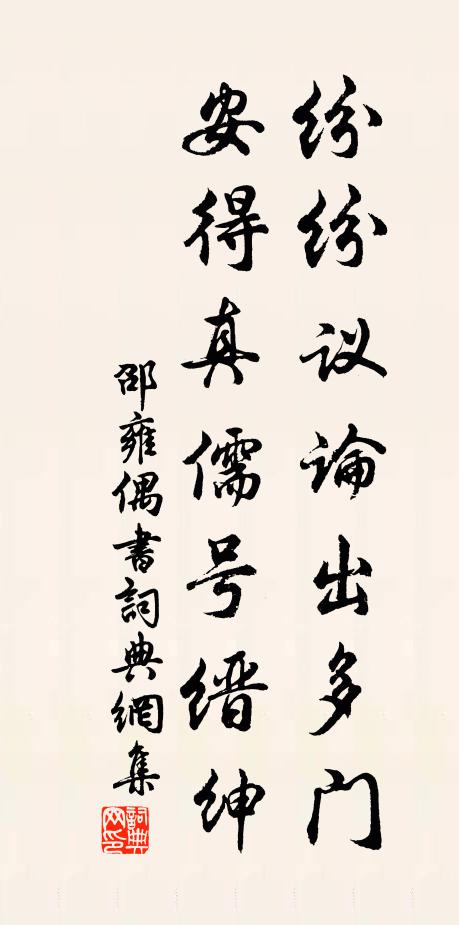 纷纷议論出多门
安得真儒号缙绅
邵雍偶書詞典網集
詞典网印